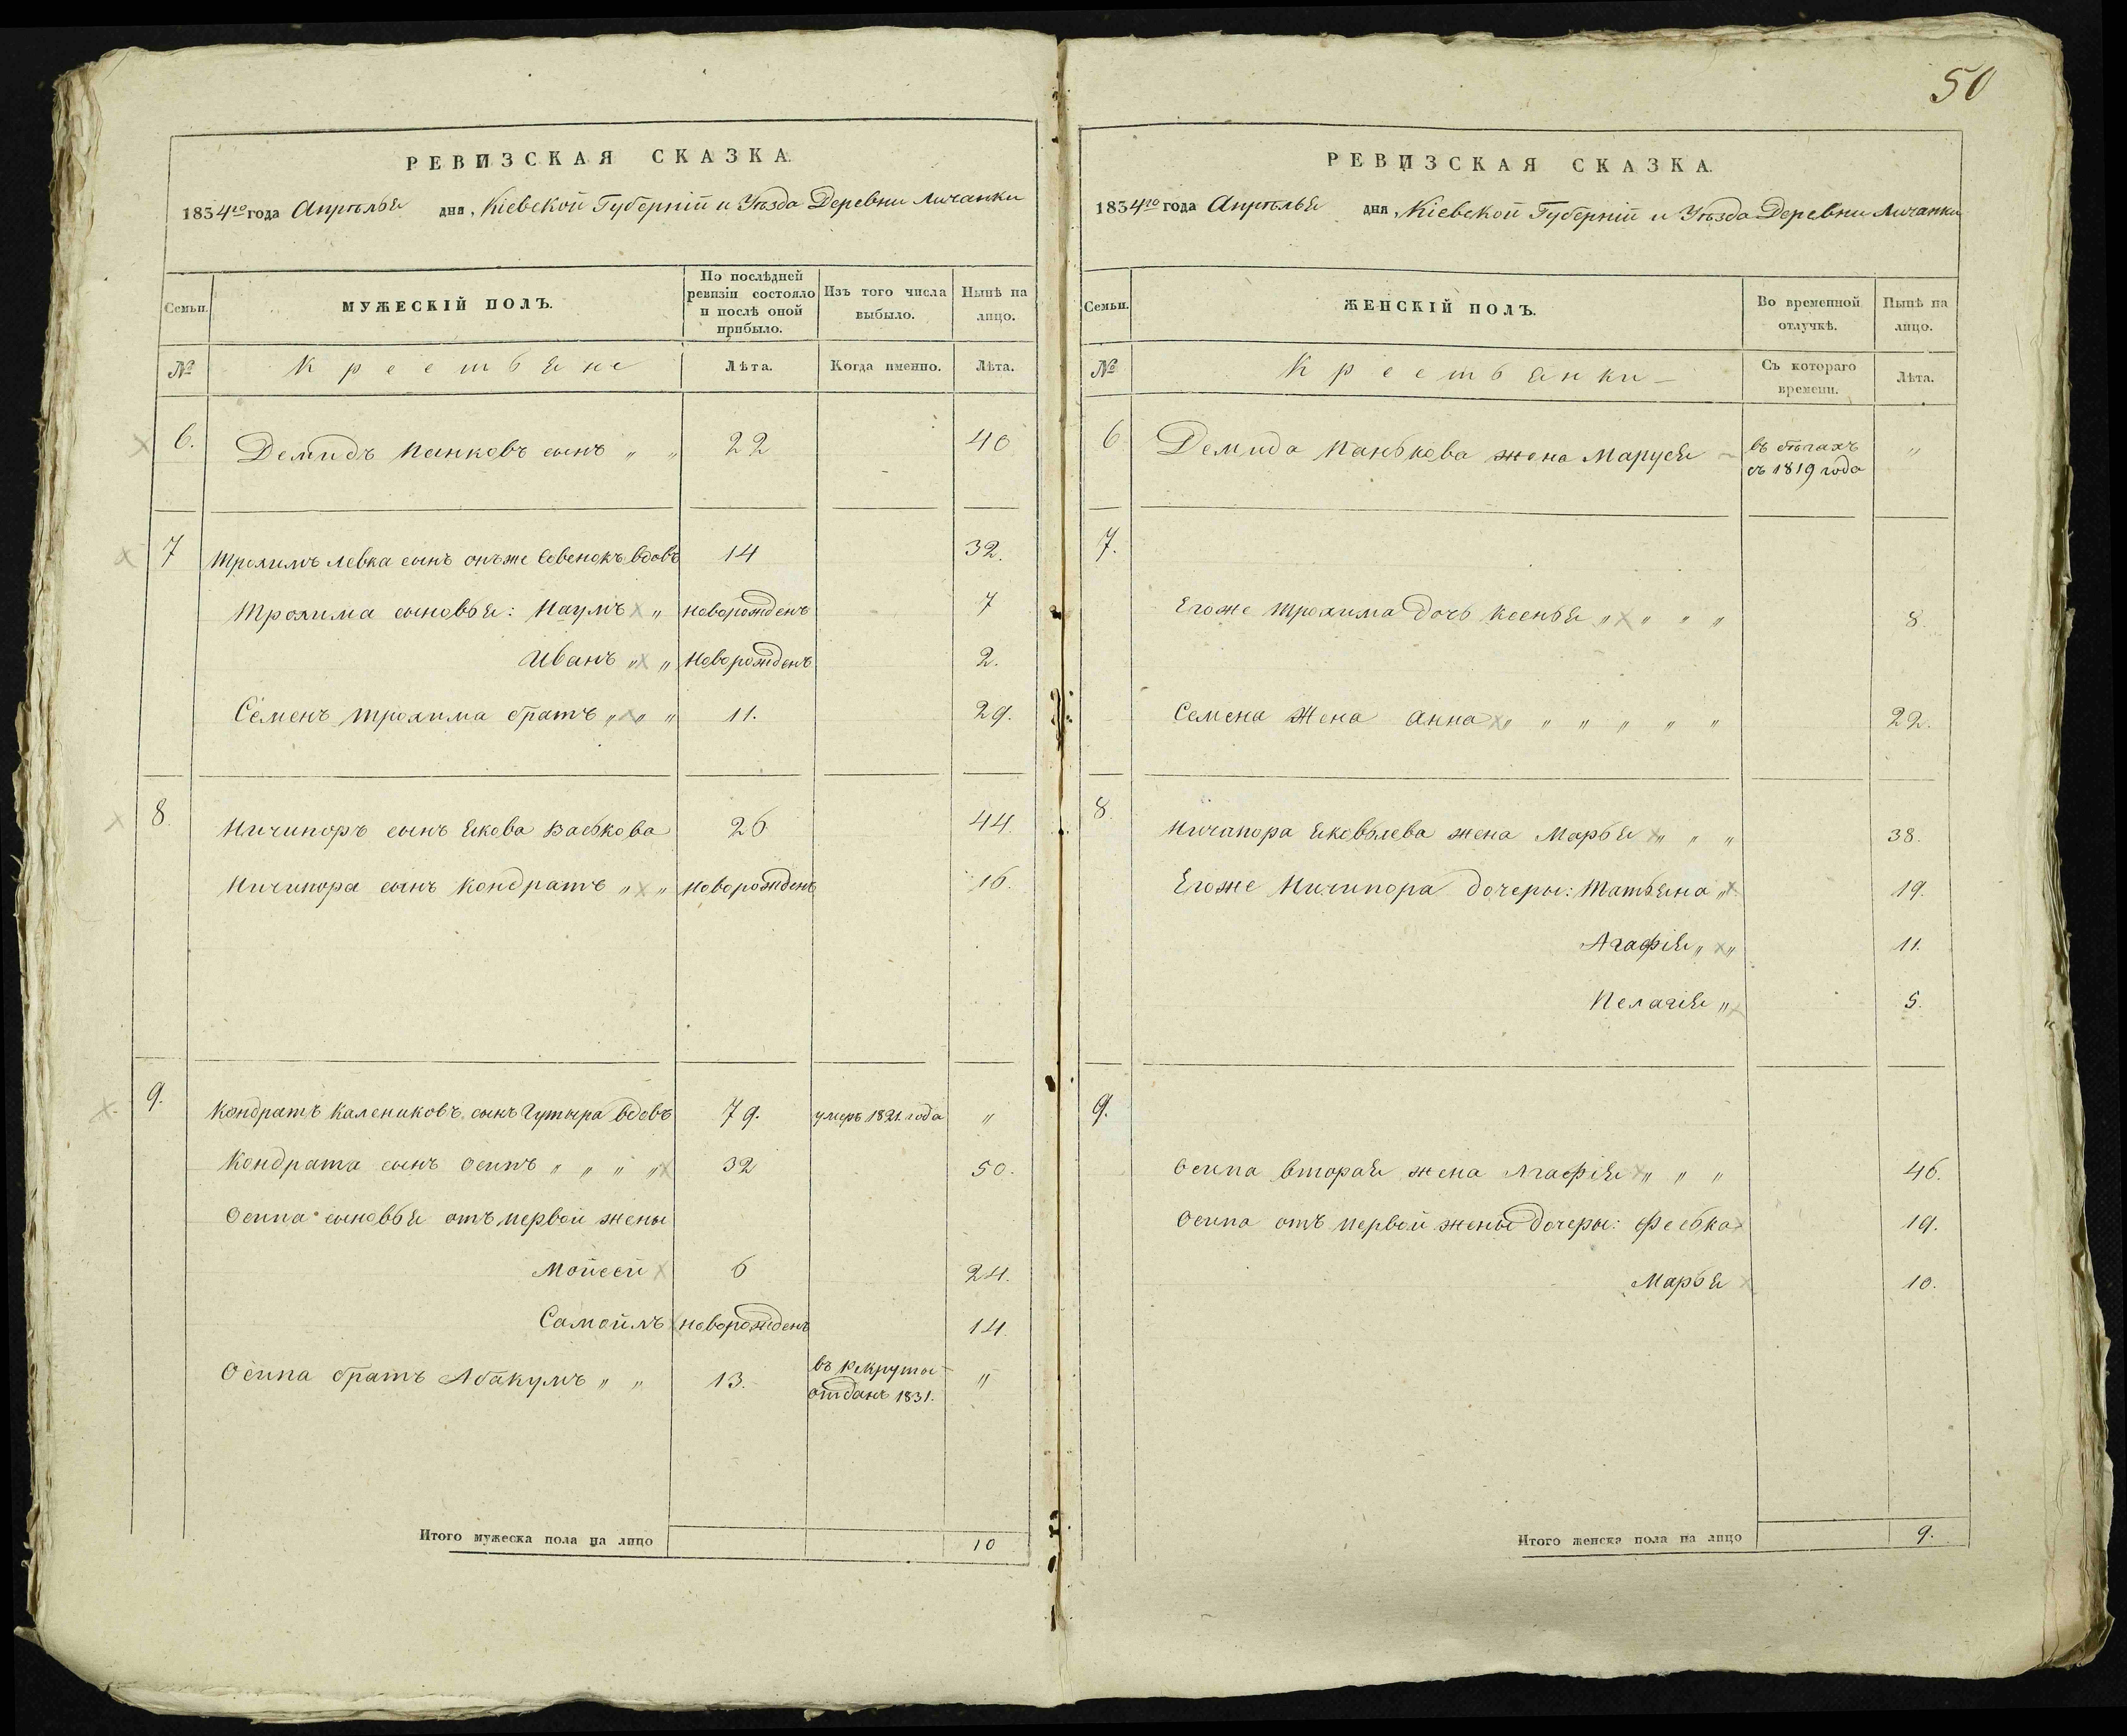 50
РЕВИЗСКАЯ СКАЗКА.
1834го года Апрѣлья дня, Кіевской Губерніи и Уѣзда Деревни Личанки
Семьи.
МУЖЕСКІЙ ПОЛЪ.
По послѣдней ревизіи состояло и послѣ оной прибыло.
Изъ того числа выбыло.
Нынѣ на лицо.
№
Крестьяне
Лѣта.
Когда именно.
Лѣта.
6. Демидъ Панковъ сынъ „ „ 22 40
7 Трохимъ Левка сынъ онъже вдовъ 14 32.
Трохима сыновья: Наумъ „ новорожденъ 7
Иванъ „ „ Новорожденъ 2.
Семенъ Трохима братъ „ „ „ 11. 29.
8. Ничипоръ сынъ Якова Васькова 26 44.
Ничипора сынъ Кондратъ „ „ новорожденъ 16.
9. Кондратъ Калениковъ сынъ Гутыра вдовъ 79. умеръ 1821. года „
Кондрата сынъ Осипъ „ „ „ „ 32 50.
Осипа сыновья отъ первой жены
Мойсей 6 24.
Самойлъ новорожденъ 14.
Осипа братъ Абакумъ „ „ 13. въ рекруты отданъ 1831. „
Итого мужеска пола на лицо 10
РЕВИЗСКАЯ СКАЗКА.
1834го года Апрѣлья дня, Кіевской Губерніи и Уѣзда Деревни Личанки
Семьи.
ЖЕНСКІЙ ПОЛЪ.
Во временной отлучкѣ.
Нынѣ на лицо.
№
Крестьянки
Съ котораго времени.
Лѣта.
6 Демида Панькова жена Маруся въ бѣгахъ съ 1819 года „
7.
Егоже Трохима дочь Ксенья „ „ „ „ 8.
Семена Жена Анна „ „ „ „ „ „ 22.
8. Ничипора Яковлева жена Марья „ „ „ 38.
Егоже Ничипора дочеры: Татьяна „ 19.
Агафія „ „ 11.
Пелагія „ 5.
9.
Осипа вторая жена Агафія „ „ „ 46.
Осипа отъ первой жены дочеры: Феська 19.
Марья 10.
Итого женска пола на лицо 9.